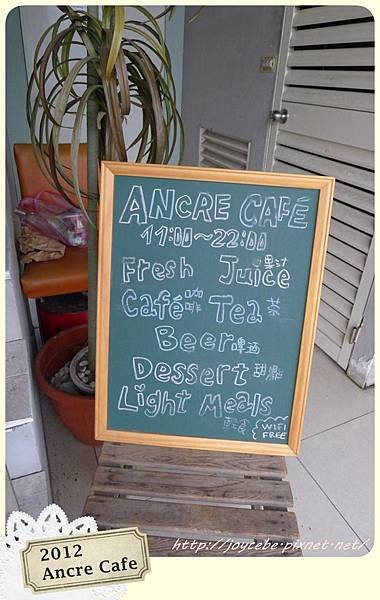 ANCRE CAFÉ
11:00~22:00
Fresh Juice 果汁
Café 咖啡 Tea 茶
Beer 啤酒
Dessert 甜點
Light Meals
輕食 WIFI FREE
2012
Ancre Cafe
http://joycebe.pixnet.net/